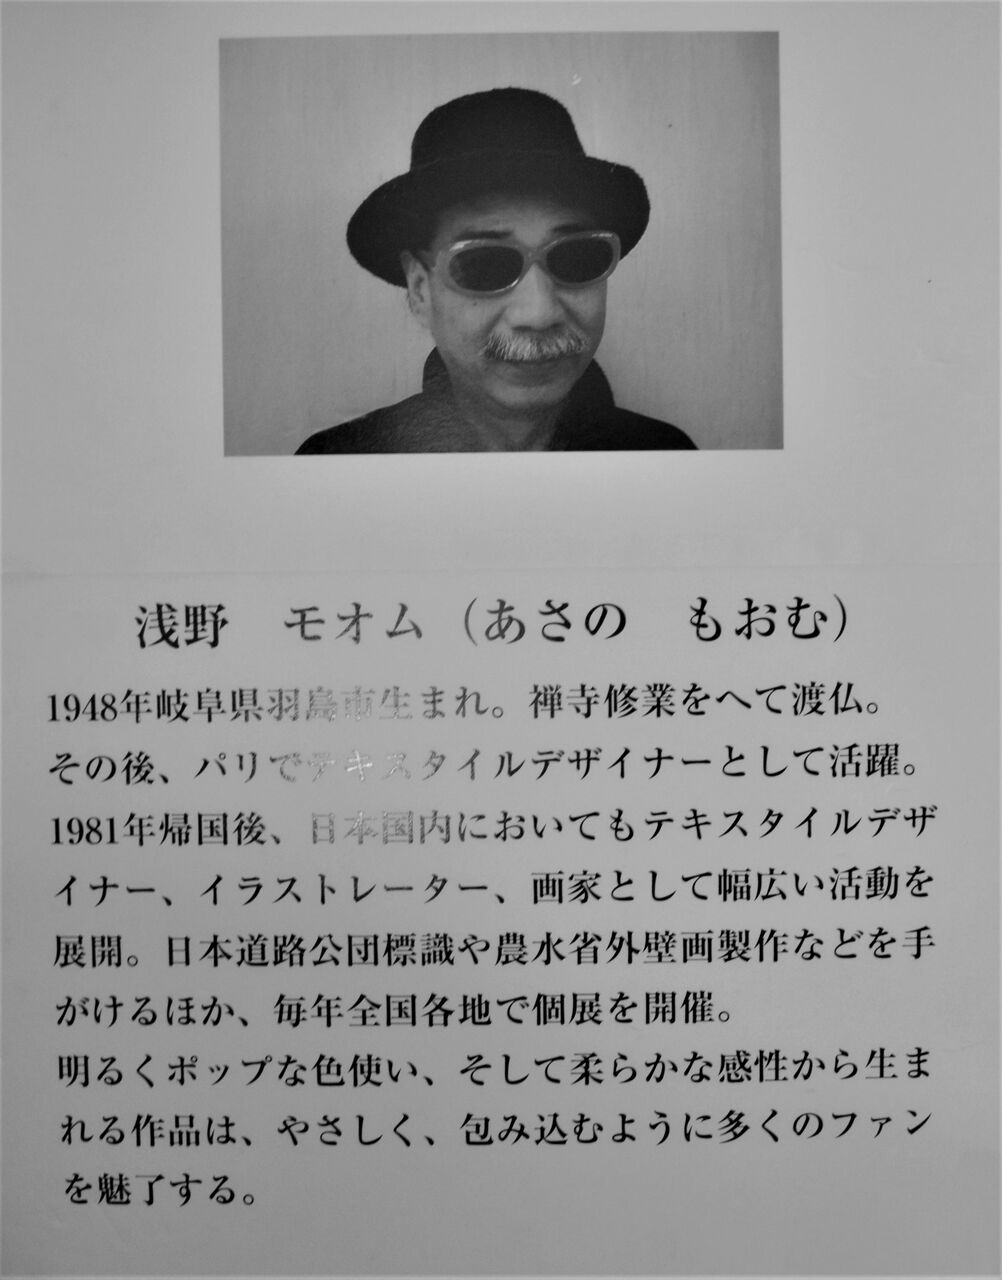 浅野　モオム（あさの　もおむ）
1948年岐阜県羽島市生まれ。禅寺修業をへて渡仏。
その後、パリでテキスタイルデザイナーとして活躍。
1981年帰国後、日本国内においてもテキスタイルデザ
イナー、イラストレーター、画家として幅広い活動を
展開。日本道路公団標識や農水省外壁画製作などを手
がけるほか、毎年全国各地で個展を開催。
明るくポップな色使い、そして柔らかな感性から生ま
れる作品は、やさしく、包み込むように多くのファン
を魅了する。